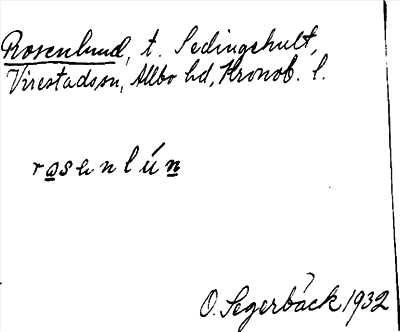 Rosenlund, t. Sedingehult,
Virestads sn, Allbo hd, Kronob. l.
rosenlún
O. Segerbäck 1932